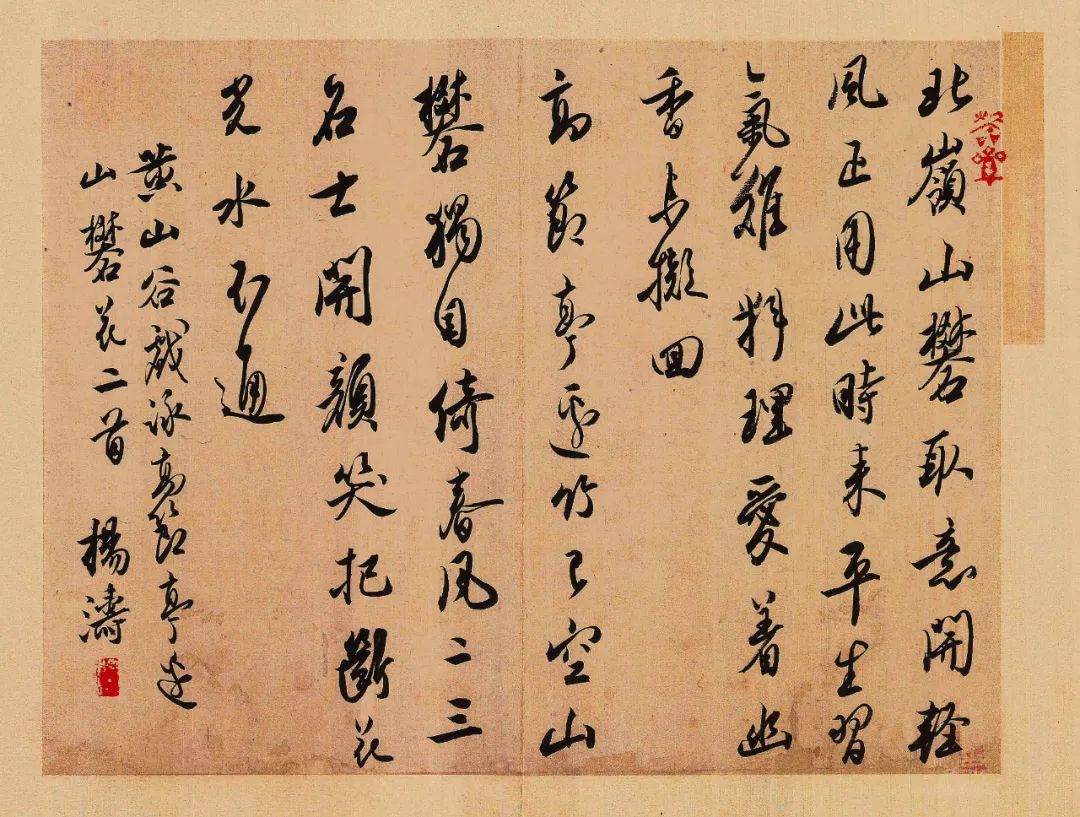 北嶺山礬取意開輕
風正用此時来平生習
氣難料理愛着幽
香未擬回
高節亭邊竹已空山
礬獨自倚春風二三
名士開顏笑把斷花
光水不通
黃山谷戲詠高節亭邊
山礬花二首 楊濤